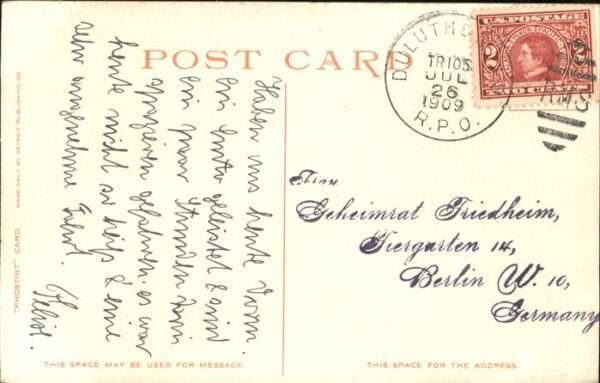 POST CARD
Haben uns heute Vorm.
ein Auto geleistet & sind
ein paar Stunden drin
spazieren gefahren. es war
heute nicht so heiss & eine
sehr angenehme Fahrt.
U.S. POSTAGE
2 2
TWO CENTS
DULUTH
TR105
JUL
26
1909
R.P.O.
RMS
Frau
Geheimrat Friedheim,
Tiergarten 14,
Berlin W. 10,
Germany
"PHOSTINT" CARD
MADE ONLY BY DETROIT PUBLISHING CO.
THIS SPACE MAY BE USED FOR MESSAGE.
THIS SPACE IS FOR THE ADDRESS.